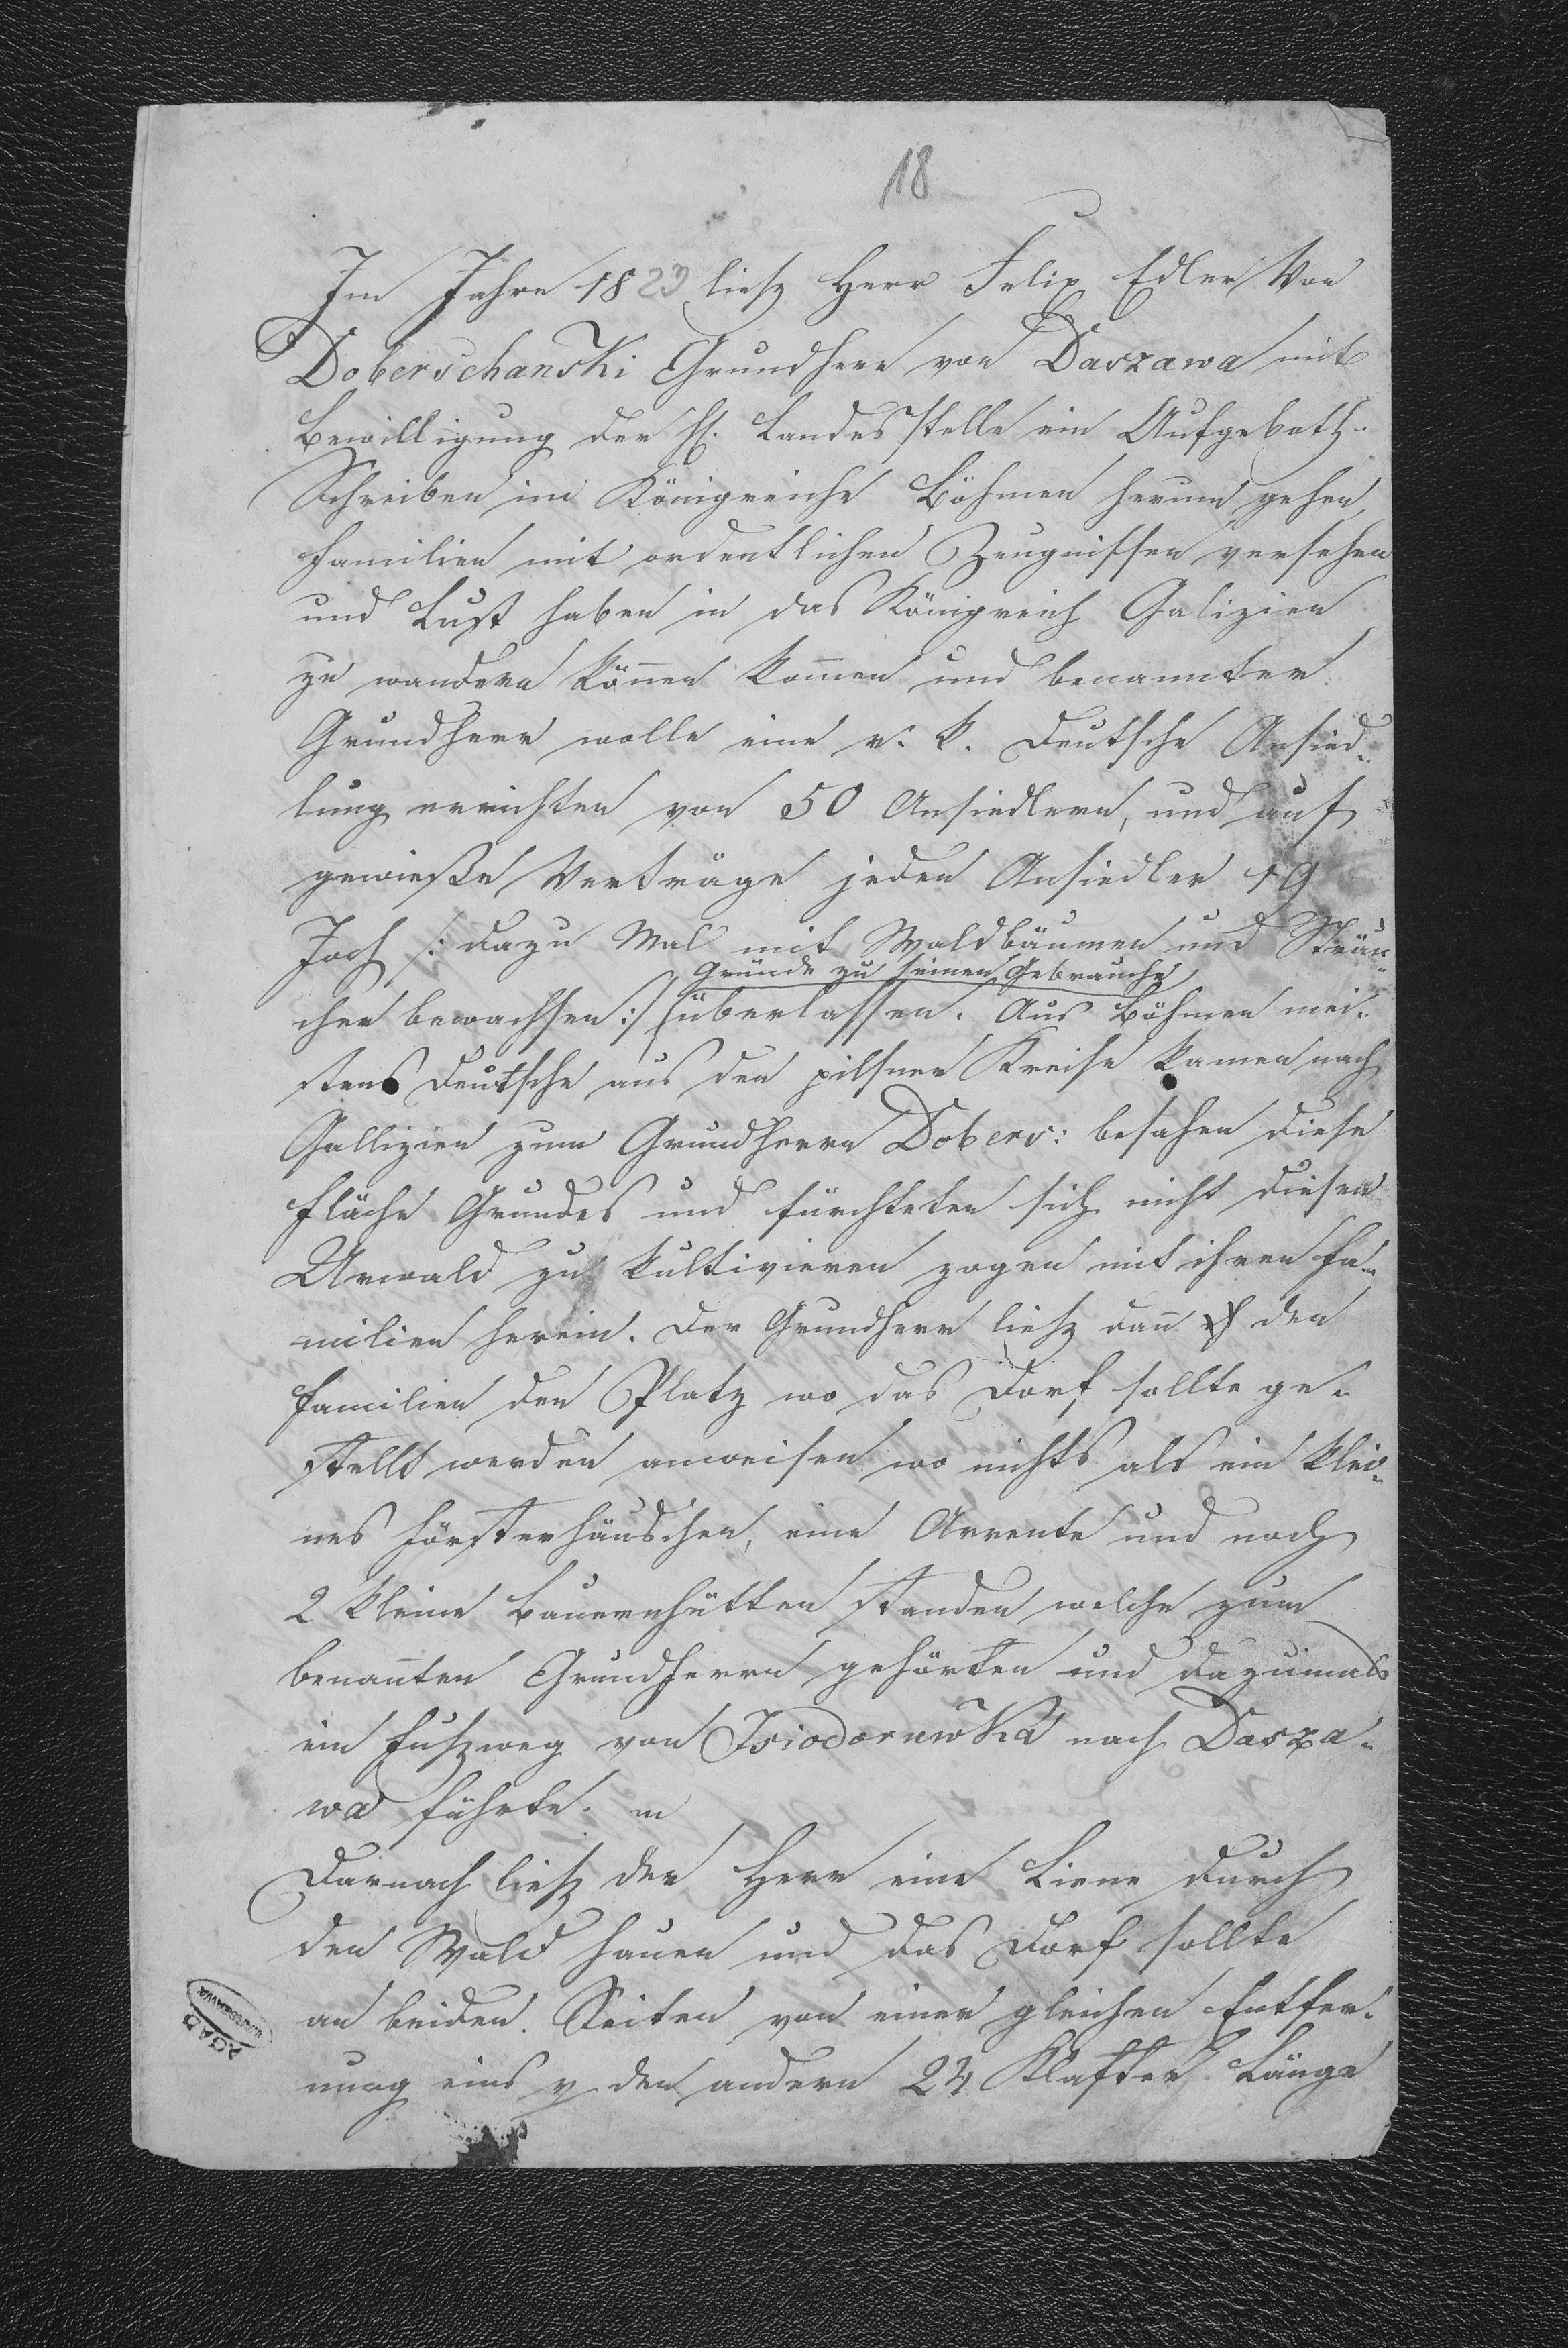 18
Im Jahre 1823 ließ Herr Felix Edler Von
Doberschanski Grundherr von Daszawa mit
Bewilligung der h. Landesstelle ein Aufgeboth-
Schreiben im Königreiche Böhmen herum gehen,
Familien mit ordentlichen Zeugnissen versehen
und Lust haben in das Königreich Galizien
zu wandern könen komen und benannter
Grundherr wolle eine r. k. Deutsche Ansied-
lung errichten von 50 Ansiedlern, und auf
gewieße Verträge jeden Ansiedler 19
Joch /: dazu Mal mit Waldbäumen und Sträu-
Gründe zu seinen Gebrauche
cher bewachsen :/ überlassen. Aus Böhmen mei-
stens Deutsche aus den pilsner Kreise kamen nach
Gallizien zum Grundherrn Dobers: besahen diese
Fläche Grundes und fürchteten sich nicht diesen
Urwald zu kultivieren zogen mit ihren Fa-
milien herein. Der Grundherr ließ dan den
Familien den Platz wo das Dorf sollte ge-
stellt werden anweisen wo nichts als ein klei-
nes Försterhäuschen, eine Arrente und noch
2 kleine Bauernhütten standen welche zum
benanten Grundherrn gehörten und dazumals
ein Fußweg von Isiodoruwka nach Dasza-
wa führte.
Darnach ließ der Herr eine Liene durch
den Wald hauen und das Dorf sollte
an beiden Seiten von einer gleichen Entfer-
nung eins v den andern 24 Klafter Länge
AGAD
WARSZAWA